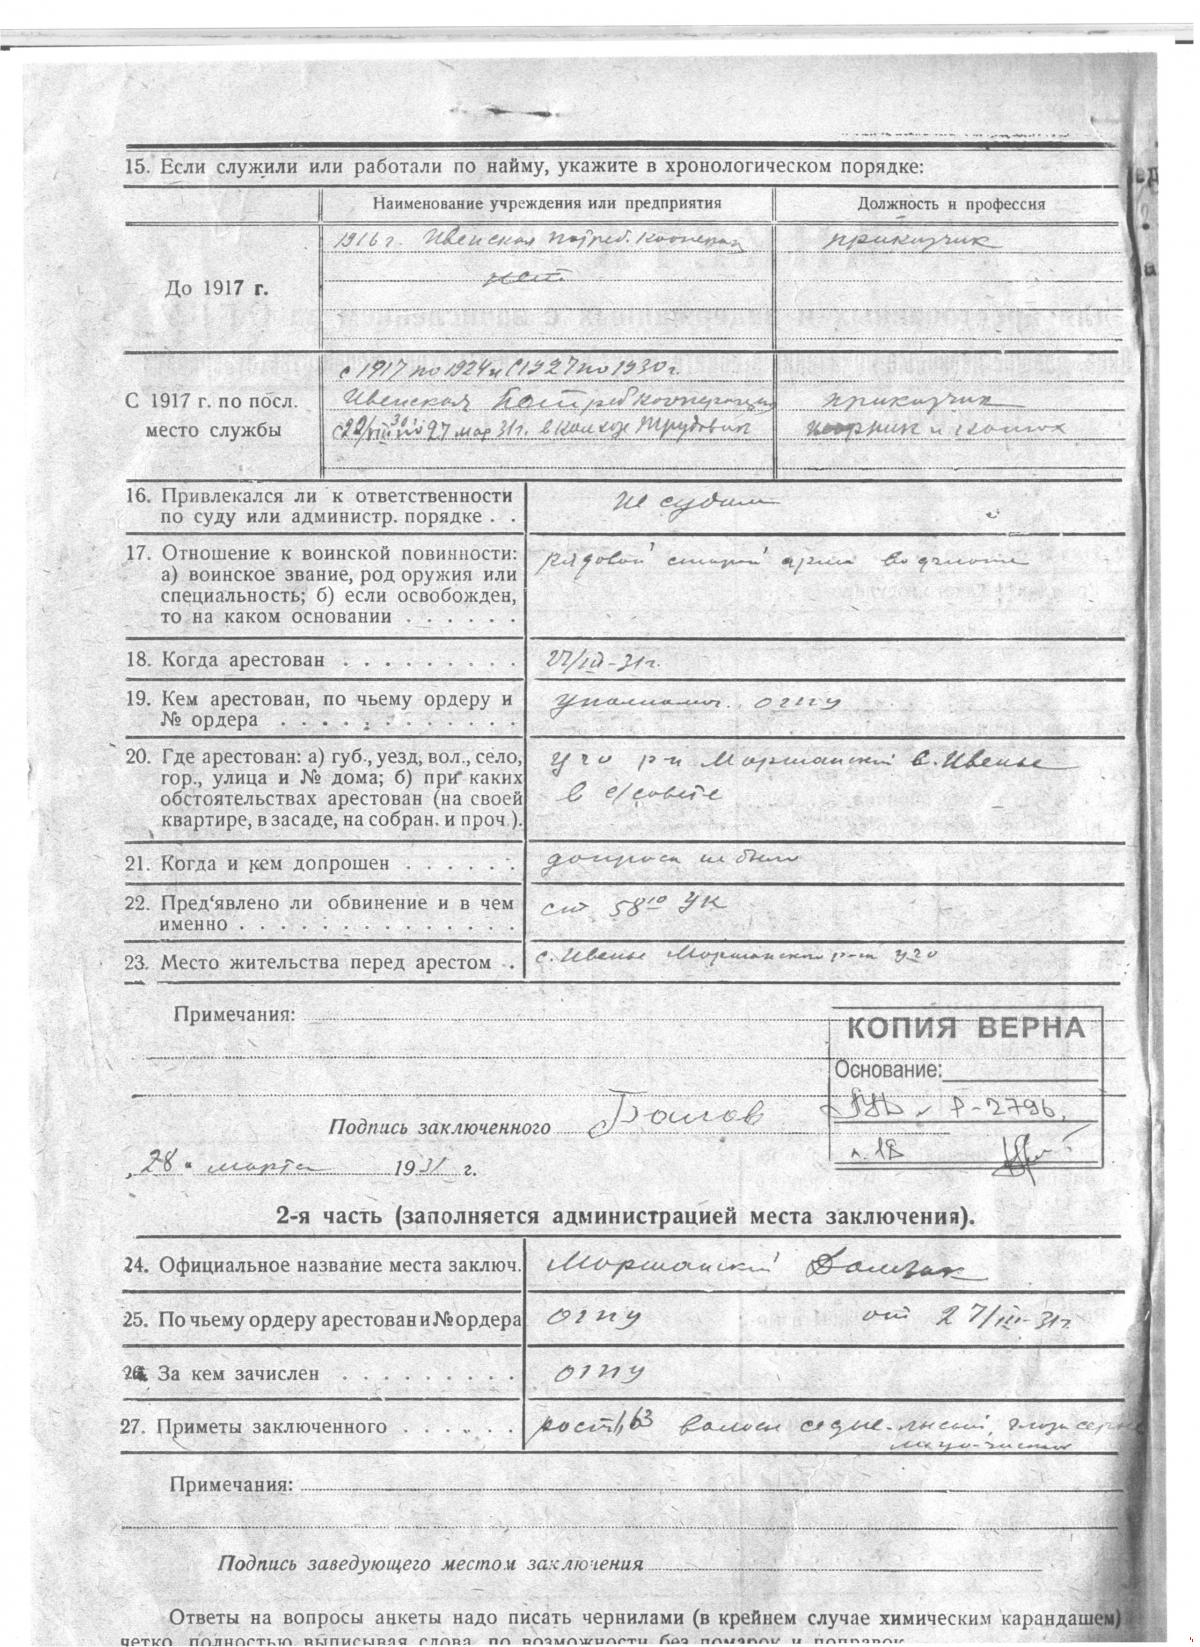 15. Если служили или работали по найму, укажите в хронологическом порядке:
Наименование учреждения или предприятия
Должность и профессия
До 1917 г.
1916 г. Ивенская потреб. кооперац
приказчик
С 1917 г. по посл.
место службы
с 1917 по 1924 и с 1927 по 1930 г.
Ивенская Потребкооперация
приказчик
27 мар 31 г. в колхозе Трудовик
16. Привлекался ли к ответственности
по суду или администр. порядке . .
не судим
17. Отношение к воинской повинности:
а) воинское звание, род оружия или
специальность; б) если освобожден,
то на каком основании . . . . . .
рядовой старой армии
18. Когда арестован . . . . . . . . .
27/III-31 г.
19. Кем арестован, по чьему ордеру и
№ ордера . . . . . . . . . . . .
уполномоч. ОГПУ
20. Где арестован: а) губ., уезд, вол., село,
гор., улица и № дома; б) при каких
обстоятельствах арестован (на своей
квартире, в засаде, на собран. и проч.).
ЦЧО р-н Моршанский с. Ивенье
в с/совете
21. Когда и кем допрошен . . . . . .
допроса не было
22. Пред'явлено ли обвинение и в чем
именно . . . . . . . . . . . . . .
ст 58¹⁰ УК
23. Место жительства перед арестом . .
с. Ивенье Моршанского р-на ЦЧО
Примечания:
КОПИЯ ВЕРНА
Основание:
Р-2796,
Подпись заключенного
„28" марта 1931 г.
2-я часть (заполняется администрацией места заключения).
24. Официальное название места заключ.
Моршанский Домзак
25. По чьему ордеру арестован и № ордера
ОГПУ от 27/III-31 г
26. За кем зачислен . . . . . . . . .
ОГПУ
27. Приметы заключенного . . . . . .
рост 1,63 волосы седые-лысый, глаза серые
лицо-чистое
Примечания:
Подпись заведующего местом заключения
Ответы на вопросы анкеты надо писать чернилами (в крайнем случае химическим карандашем)
четко, полностью выписывая слова, по возможности без помарок и поправок.